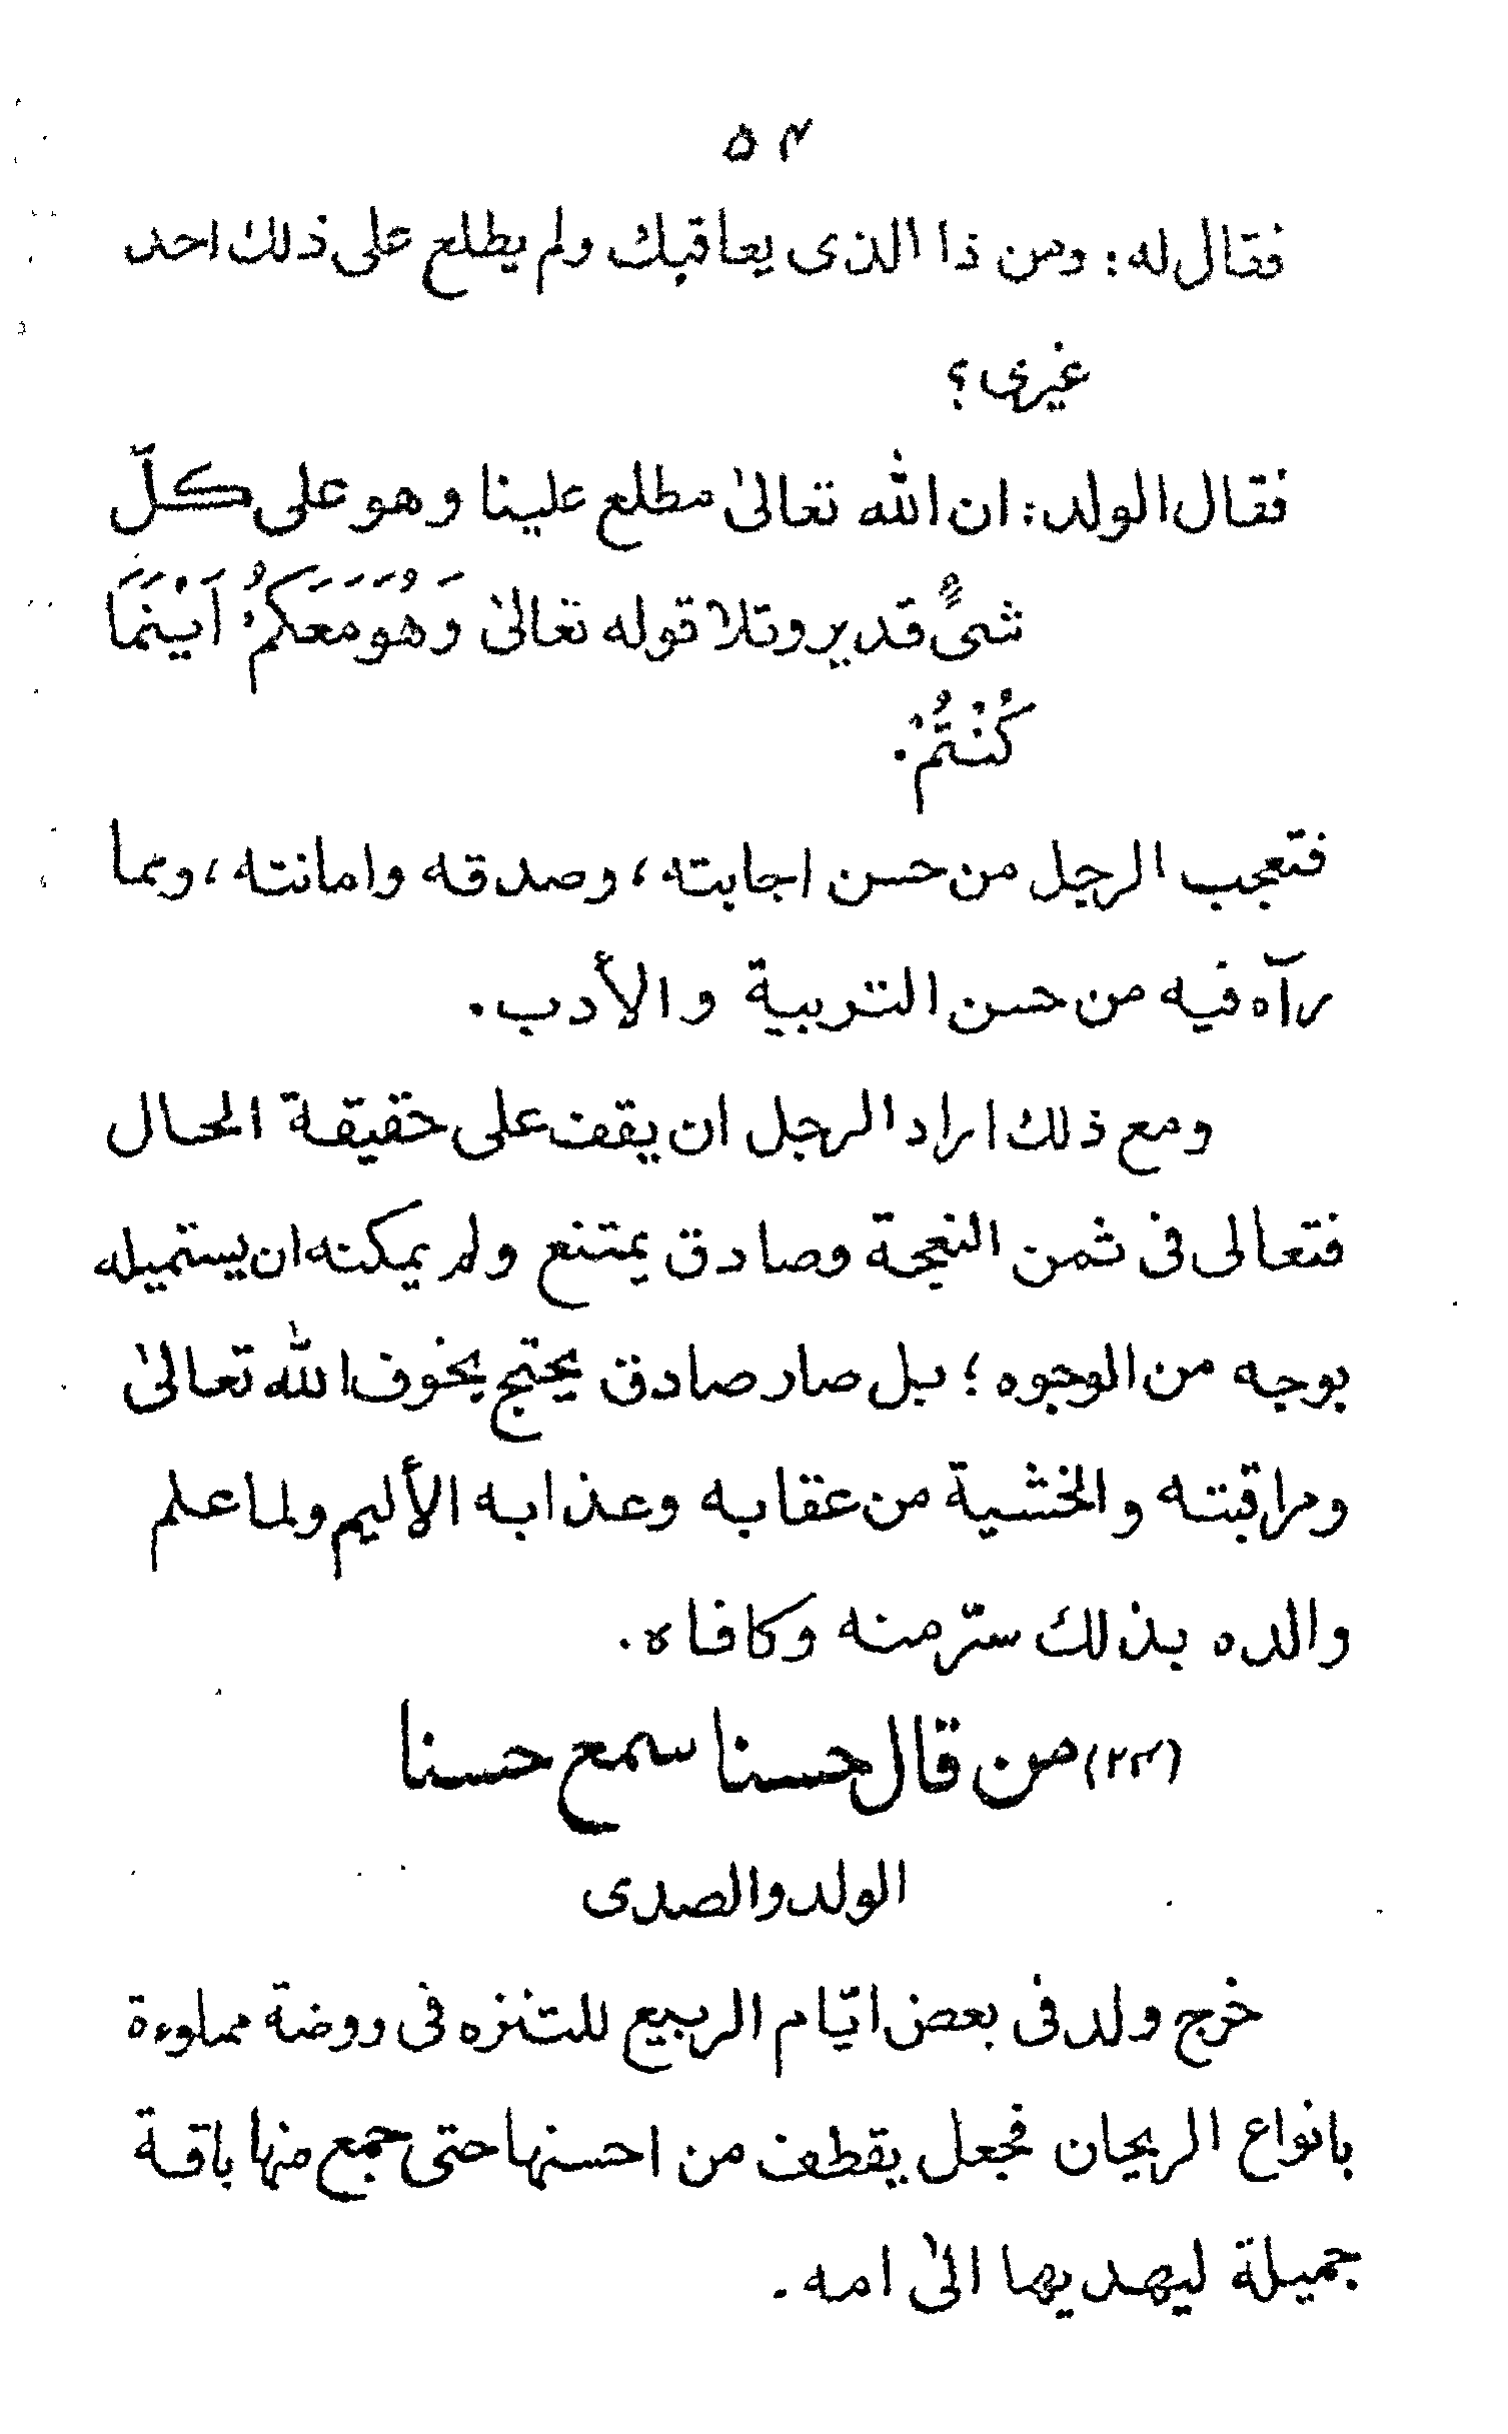 ۵۴
فقال له: ومن ذا الذى يعاقبك ولم يطلع على ذلك احد
غيرى؟
فقال الولد: ان الله تعالىٰ مطلع علينا وهو على كلّ
شىءٍ قدير وتلا قوله تعالىٰ وَهُوَ مَعَكُمْ اَيْنَمَا
كُنْتُمْ.
فتعجب الرجل من حسن اجابته، وصدقه وامانته، وبما
رآه فيه من حسن التربية والأدب.
ومع ذلك اراد الرجل ان يقف على حقيقة الحال
فتعالى فى ثمن النعجة وصادق يمتنع ولم يمكنه ان يستميله
بوجه من الوجوه؛ بل صار صادق يحتج بخوف الله تعالىٰ
ومراقبته والخشية من عقابه وعذابه الأليم ولما علم
والده بذلك سرّ منه وكافاه.
(۲۴) من قال حسنا سمع حسنا
الولد والصدى
خرج ولد فى بعض ايّام الربيع للتنزه فى روضة مملوءة
بانواع الريحان فجعل يقطف من احسنها حتى جمع منها باقة
جميلة ليهديها الىٰ امه.